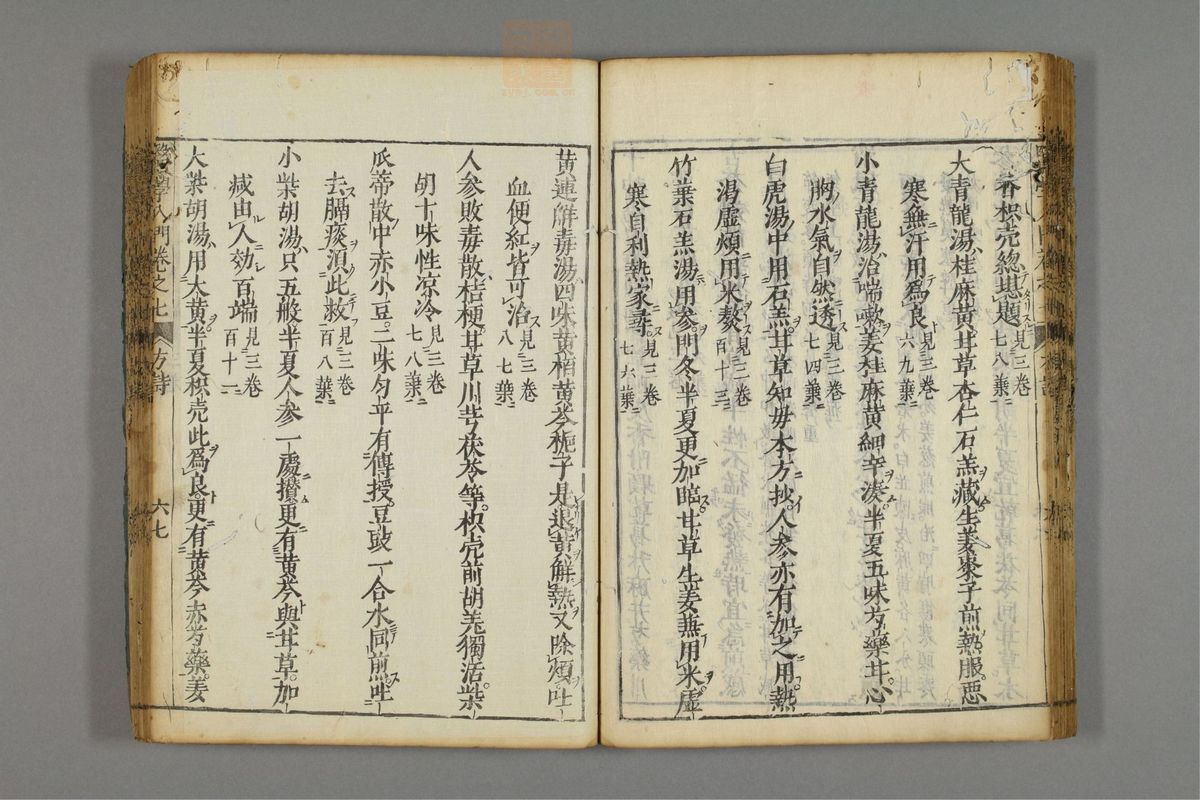 木香枳壳總堪題 見三卷七八葉
大青龍湯桂麻黄甘草杏仁石羔藏生姜棗子煎熱服惡
寒無汗用爲良 見三卷六九葉
小青龍湯治喘嗽姜桂麻黄細辛湊半夏五味芍藥甘心
胸水氣自然透 見三卷七四葉
白虎湯中用石羔甘草知毋本方抄人參亦有加之用熱
渴虚煩用米熬 見三卷百十三
竹葉石羔湯用參門冬半夏更加臨甘草生姜兼用米虚
寒自利熱家尋 見三卷七六葉
黄連觧毒湯四味黄栢黄芩梔子是退黄觧熱又除煩吐
血便紅皆可治 見三卷八七葉
人參敗毒散桔梗甘草川芎茯苓等枳壳前胡羌獨活柴
胡十味性凉冷 見三卷七八葉
瓜蒂散中赤小豆二味勻平有傳授豆豉一合水同煎吐
去膈痰須此救 見三卷百八葉
小柴胡湯只五般半夏人參一處攢更有黄芩與甘草加
减由人効百端 見三卷百十一
大柴胡湯用大黄半夏枳壳此爲良更有黄芩赤芍藥姜
醫學入門卷之七 方詩 六七